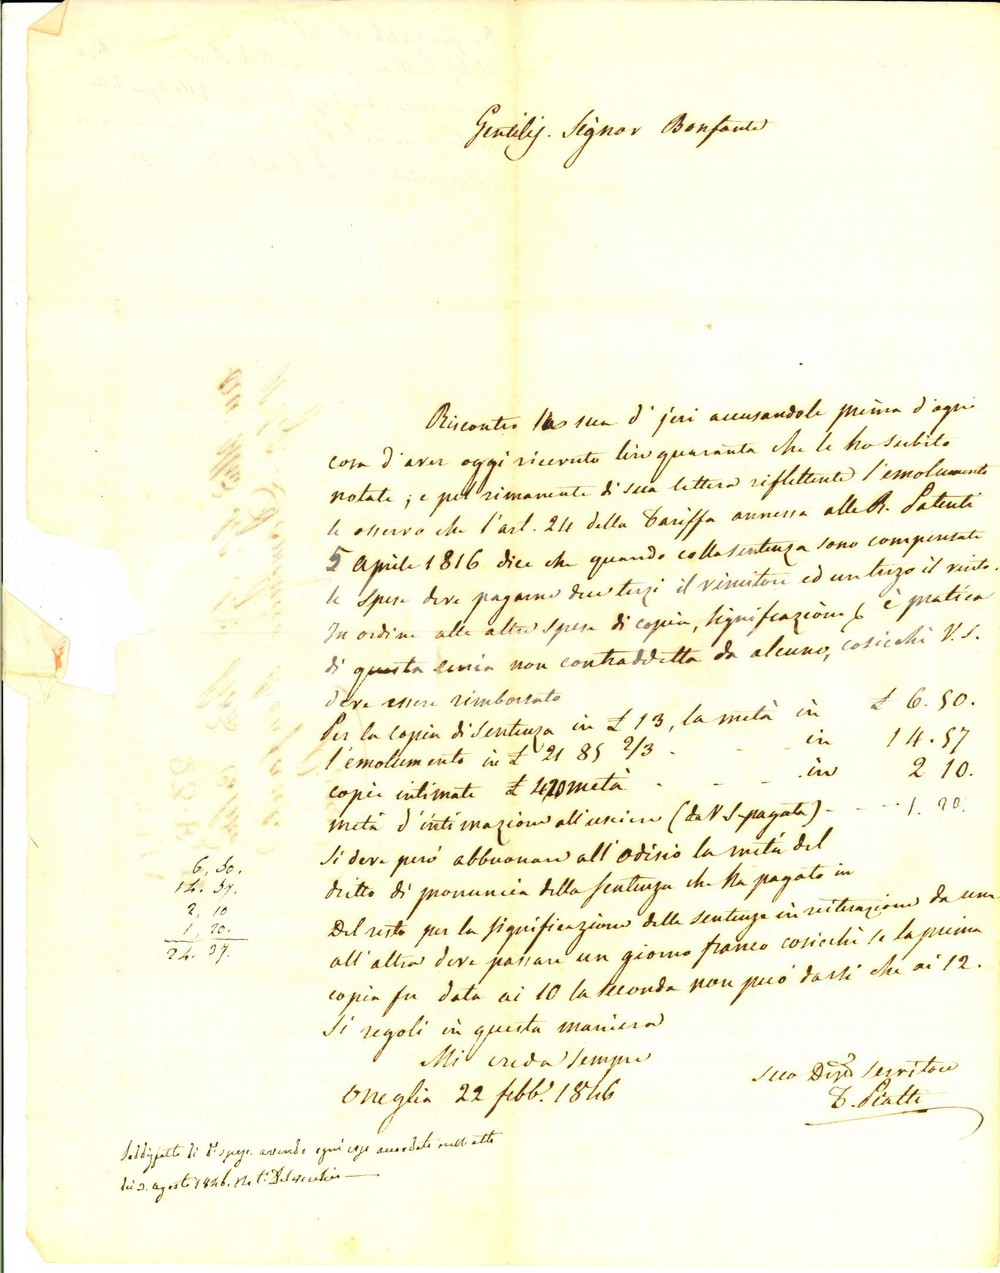 Gentilis. Signor Bonfante
Riscontro la sua d'jeri accusandole prima d'ogni
cosa d'aver oggi ricevuto lire quaranta che le ho subito
notate; e pel rimanente di sua lettera riflettente l'emolumento
le osservo che l'art. 24 della Tariffa annessa alle R. Patenti
5 Aprile 1816 dice che quando colla sentenza sono compensate
le spese deve pagarne due terzi il vincitore ed un terzo il vinto.
In ordine alle altre spese di copia, significazione è pratica
di questa curia non contraddetta da alcuno, cosicchè V. S.
deve essere rimborsato
Per la copia di sentenza in £ 13, la metà in £ 6. 50.
l'emolumento in £ 21 85 2/3 - - - in 14. 57
copie intimate £ 4,20 metà - - - in 2 10.
metà d'intimazione all'usciere (da V S. pagata) - - - - 1. 20.
Si deve però abbuonare all'Odisio la metà del
dritto di pronuncia della sentenza che ha pagato in
Del resto per la significazione della sentenza in da una
all'altra deve passare un giorno franco cosicchè se la prima
copia fu data ai 10 la seconda non può darsi che ai 12.
Si regoli in questa maniera
Mi creda sempre
Oneglia 22 febb. 1846
suo Dev. servitore
T. Piatti
6, 50.
14. 57.
2, 10
1, 20.
24. 37.
di d. spese avendo ogni cosa nell'atto
li 2. agosto 1846.